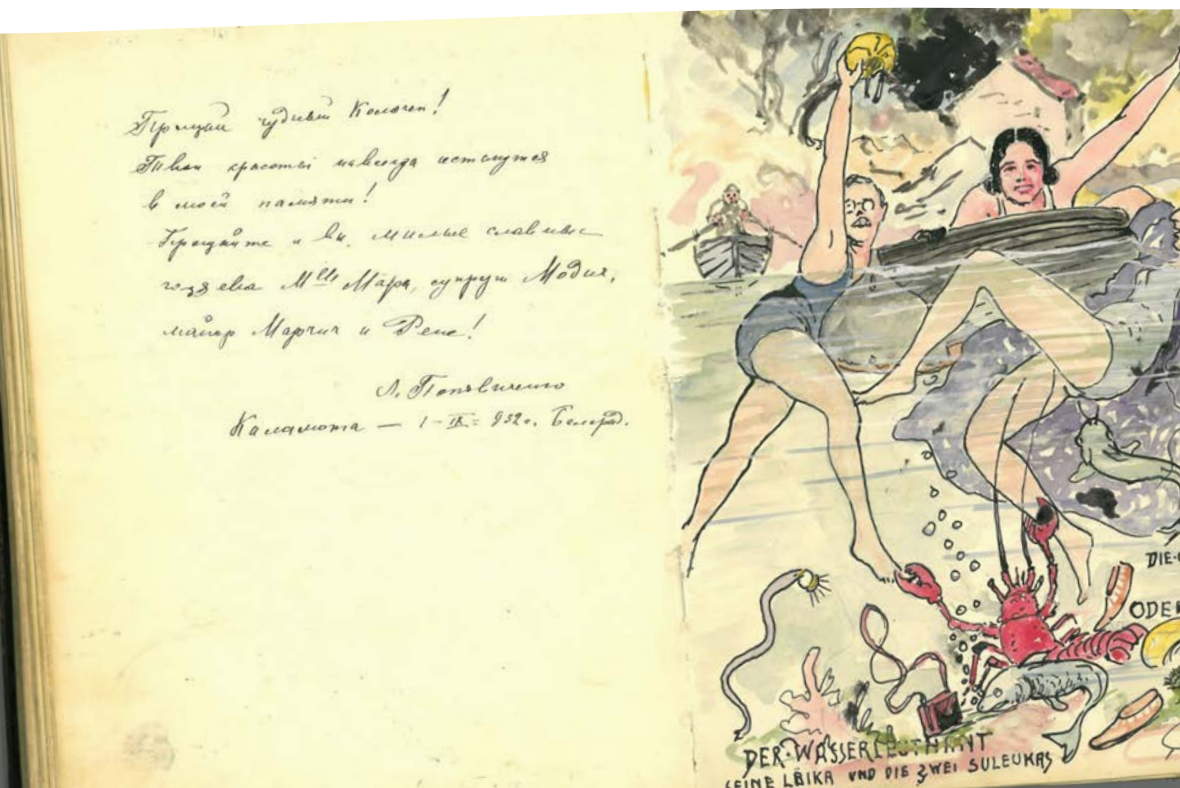 Прощай чудный Колочеп!
Твои красоты навсегда останутся
в моей памяти!
Прощайте и вы, милые славные
хозяева Mlle Мара, супруги Модич,
майор Марчич и Рене!
Каламота — 1 - IX = 932 г. Белград.
DIE
ODER
DER·WASSERLEUTNANT
SEINE LÄIKA UND DIE ZWEI SULEUKAS